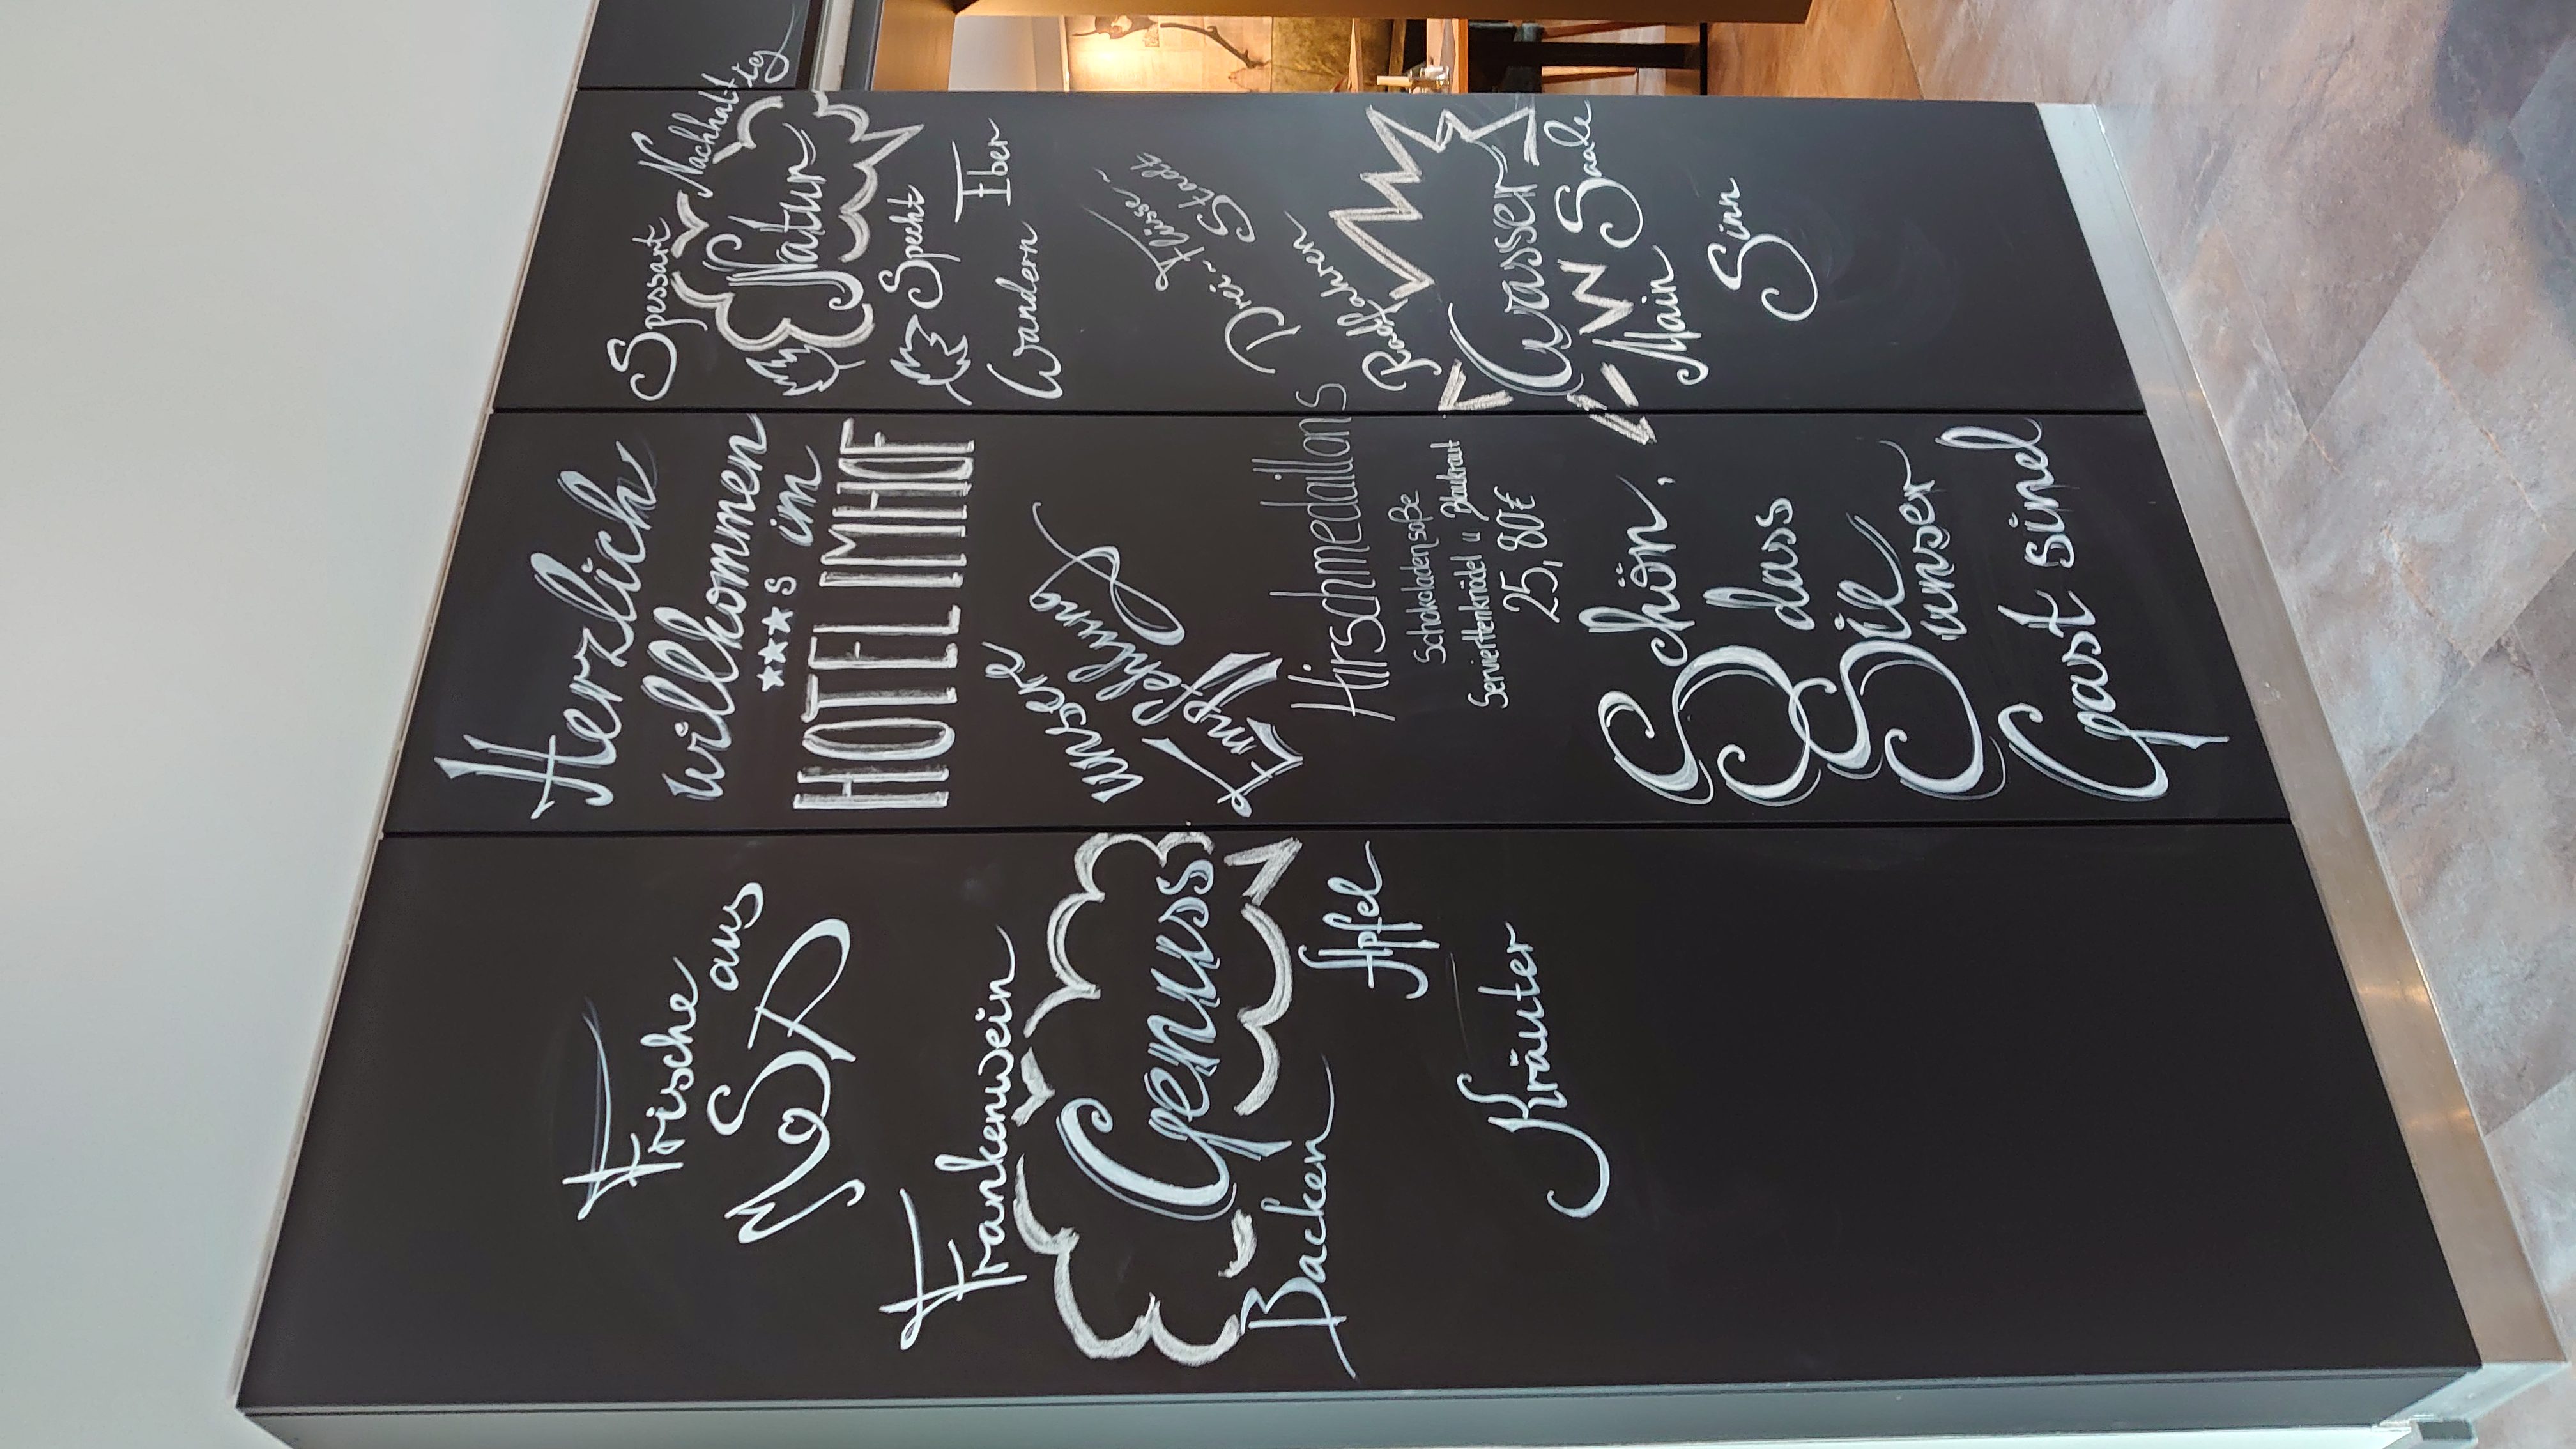 Frische
aus
MSP
Frankenwein
Genuss
Backen
Apfel
Kräuter
Herzlich
willkommen
s im
HOTEL IMHOF
unsere
Empfehlung
Hirschmedaillons
Schokoladensoße
Serviettenknödel u Blaukraut
25,80€
Schön,
dass
Sie
unser
Gast sind
Spessart
Nachhaltig
Natur
Specht
Iber
Wandern
Drei-Flüsse-
Stadt
Radfahren
Wasser
Main
Saale
Sinn